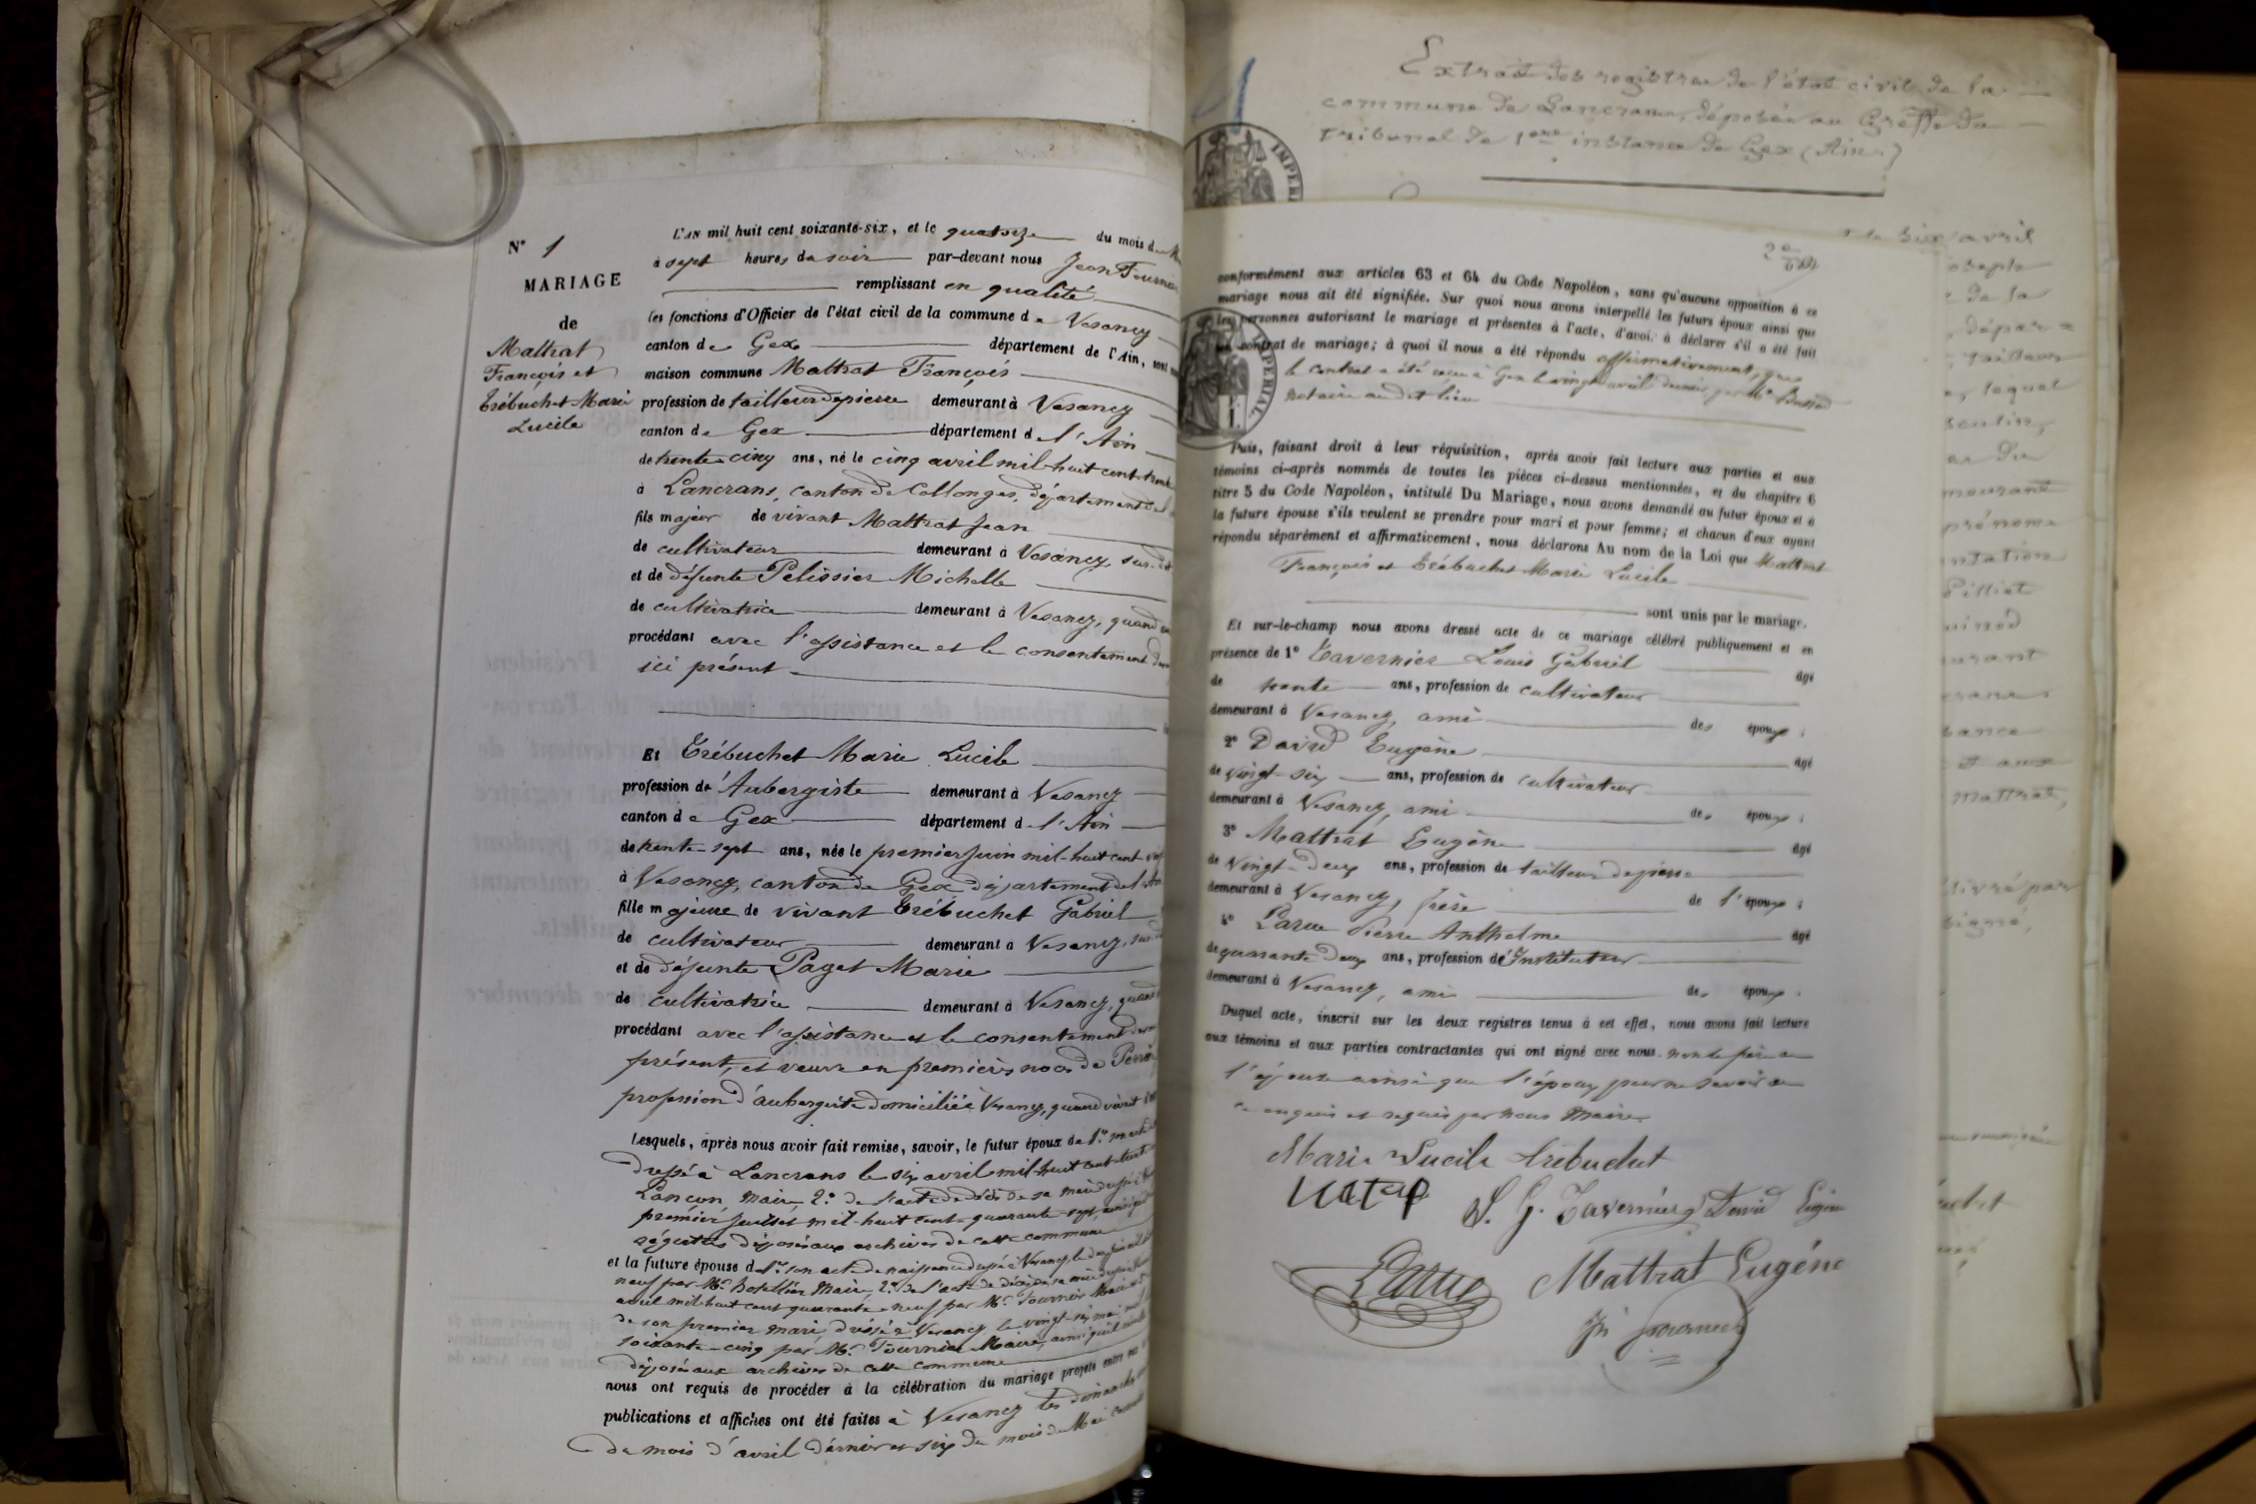 N° 1
MARIAGE
de
Mattrat
François et
Trébuchet Marie
Lucile
L'AN mil huit cent soixante-six, et le quatorze du mois de
à sept heures du soir par-devant nous Jean Fournier
remplissant en qualité
les fonctions d'Officier de l'état civil de la commune de Vesancy
canton de Gex département de l'Ain, sont
maison commune Mattrat François
profession de tailleur de pierre demeurant à Vesancy
canton de Gex département de l'Ain
de trente cinq ans, né le cinq avril mil-huit cent-trente
à Lancrans, canton de Collonges, département de l'
fils majeur de vivant Mattrat Jean
de cultivateur demeurant à Vesancy, sus-dit
et de défunte Pelissier Michelle
de cultivatrice demeurant à Vesancy, quand
procédant avec l'assistance et le consentement
ici présent
Et Trébuchet Marie Lucile
profession d'Aubergiste demeurant à Vesancy
canton de Gex département de l'Ain
de trente-sept ans, née le premier Juin mil-huit cent
à Vesancy, canton de Gex département de l'Ain
fille majeure de vivant Trébuchet Gabriel
de cultivateur demeurant à Vesancy, sus-
et de défunte Paget Marie
de cultivatrice demeurant à Vesancy, quand
procédant avec l'assistance et le consentement
présent, et veuve en premières noces de
profession d'aubergiste domicilié à Vesancy, quand vivait
Lesquels, après nous avoir fait remise, savoir, le futur époux de 1°
dressé à Lancrans le six avril mil-huit cent-trente
Lançon Maire 2° de l'acte de décès de sa mère
premier Juillet mil-huit cent-quarante-sept, ainsi
régistres déposés aux archives de cette commune
et la future épouse de 1° son acte de naissance dressé à Vesancy, le deux
neuf par Mr. Maire, 2° de l'acte de décès de sa mère
avril mil-huit cent quarante-neuf par Mr. Fournier Maire
de son premier mari, dressé à Vesancy le vingt-six mai
soixante-cinq par Mr. Fournier Maire, ainsi qu'il
déposés aux archives de cette commune
nous ont requis de procéder à la célébration du mariage projeté entre eux
publications et affiches ont été faites à Vesancy les dimanches
du mois d'avril dernier et six du mois de Mai courant
Extrait des registres de l'état civil de la
commune de Lancrans, déposés au Greffe du
tribunal de 1ere instance de Gex (Ain)
IMPERI
conformément aux articles 63 et 64 du Code Napoléon, sans qu'aucune opposition à ce
mariage nous ait été signifiée. Sur quoi nous avons interpellé les futurs époux ainsi que
les personnes autorisant le mariage et présentes à l'acte, d'avoir à déclarer s'il a été fait
un contrat de mariage; à quoi il nous a été répondu affirmativement, que
le contrat a été reçu à Gex le vingt avril dernier par Me
notaire au dit lieu
PERIAL
Puis, faisant droit à leur réquisition, après avoir fait lecture aux parties et aux
témoins ci-après nommés de toutes les pièces ci-dessus mentionnées, et du chapitre 6
titre 5 du Code Napoléon, intitulé Du Mariage, nous avons demandé au futur époux et à
la future épouse s'ils veulent se prendre pour mari et pour femme; et chacun d'eux ayant
répondu séparément et affirmativement, nous déclarons Au nom de la Loi que Mattrat
François et Trébuchet Marie Lucile
sont unis par le mariage.
Et sur-le-champ nous avons dressé acte de ce mariage célébré publiquement et en
présence de 1° Tavernier Louis Gabriel âgé
de trente ans, profession de cultivateur
demeurant à Vesancy, ami des époux ;
2° David Eugène âgé
de vingt-six ans, profession de cultivateur
demeurant à Vesancy, ami des époux ;
3° Mattrat Eugène âgé
de vingt-deux ans, profession de tailleur de pierre
demeurant à Vesancy, frère de l'époux ;
4° Larue Pierre Anthelme âgé
de quarante deux ans, profession d'Instituteur
demeurant à Vesancy, ami des époux .
Duquel acte, inscrit sur les deux registres tenus à cet effet, nous avons fait lecture
aux témoins et aux parties contractantes qui ont signé avec nous. non le père de
l'épouse ainsi que l'époux pour ne savoir
ce enquis et requis par nous Maire
Marie Lucile trebuchet
L. G. Tavernier David Eugène
Larue Mattrat Eugène
Jn fournier